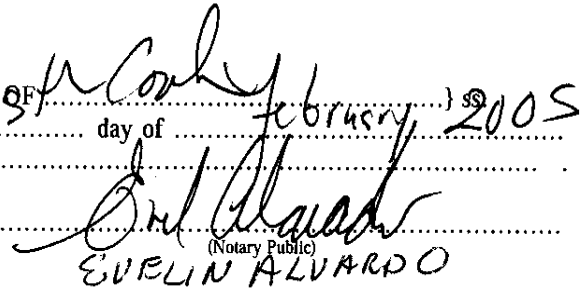 OF Cook } ss.
5th day of February, 2005
(Notary Public)
EVELIN ALVARDO